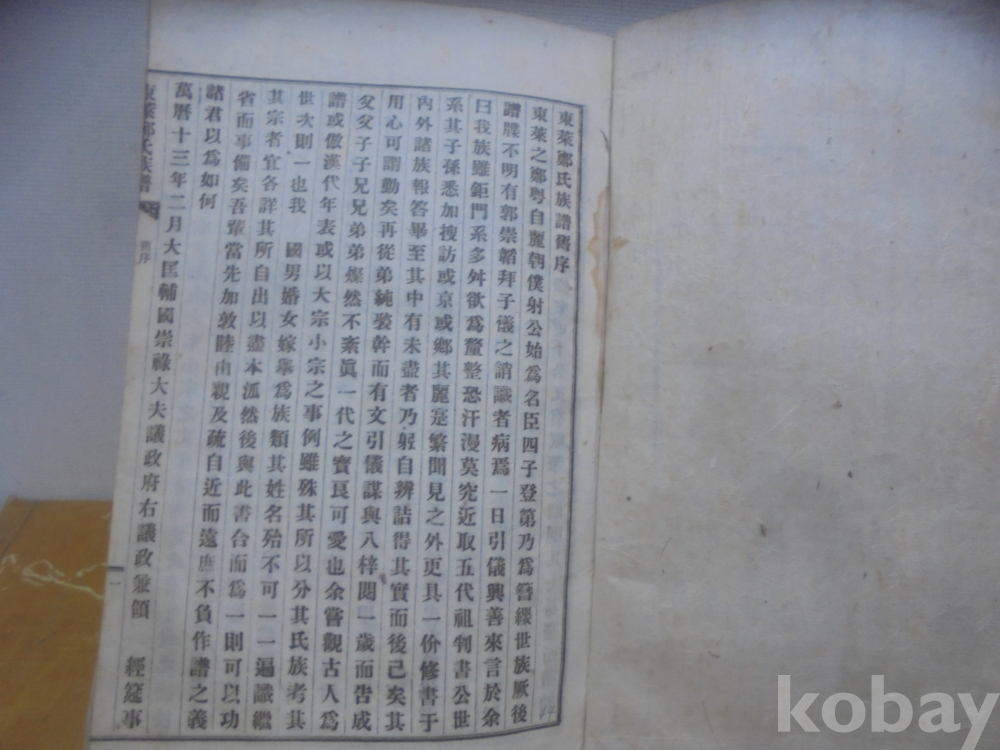 東萊鄭氏族譜舊序
東萊之鄭粤自麗朝僕射公始爲名臣四子登第乃爲簪纓世族厥後
譜牒不明有郭崇韜拜子儀之誚識者病焉一日引儀興善來言於余
曰我族雖鉅門系多舛欲爲釐整恐汗漫莫究近取五代祖判書公世
系其子孫悉加搜訪或京或鄕其麗寔繁聞見之外更具一份修書于
內外諸族報答畢至其中有未盡者乃躬自辨詰得其實而後已矣其
用心可謂勤矣再從弟純嫢幹而有文引儀謀與八梓閱一歲而告成
父父子子兄兄弟弟燦然不紊眞一代之寶良可愛也余嘗觀古人爲
譜或倣漢代年表或以大宗小宗之事例雖殊其所以分其氏族考其
世次則一也我 國男婚女嫁擧爲族類其姓名殆不可一一遍識繼
其宗者宜各詳其所自出以盡本派然後與此書合而爲一則可以功
省而事備矣吾輩當先加敦睦由親及疏自近而遠庶不負作譜之義
諸君以爲如何
萬曆十三年二月大匡輔國崇祿大夫議政府右議政兼領 經筵事
東萊鄭氏族譜
舊序
一
kobay